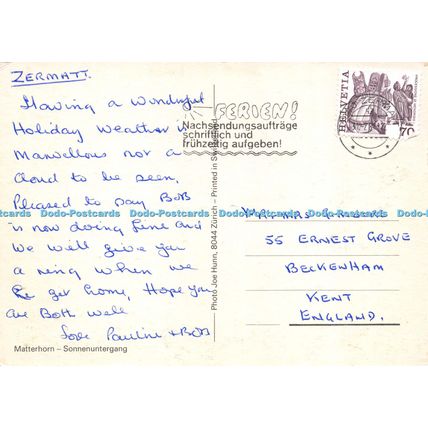 ZERMATT.
Having a Wonderful
Holiday Weather is
Marvellous not a
Cloud to be seen.
Pleased to say BOB
is now doing fine and
We will give you
a ring when we
get home, Hope you
are Both well
Love Pauline + BOB
Matterhorn – Sonnenuntergang
Photo Joe Hunn, 8044 Zürich – Printed in Switzerland
FERIEN!
Nachsendungsaufträge
schriftlich und
frühzeitig aufgeben!
HELVETIA
70
Dodo-Postcards Dodo-Postcards Dodo-Postcards Dodo-Postcards
55 ERNEST GROVE
BECKENHAM
KENT
ENGLAND.